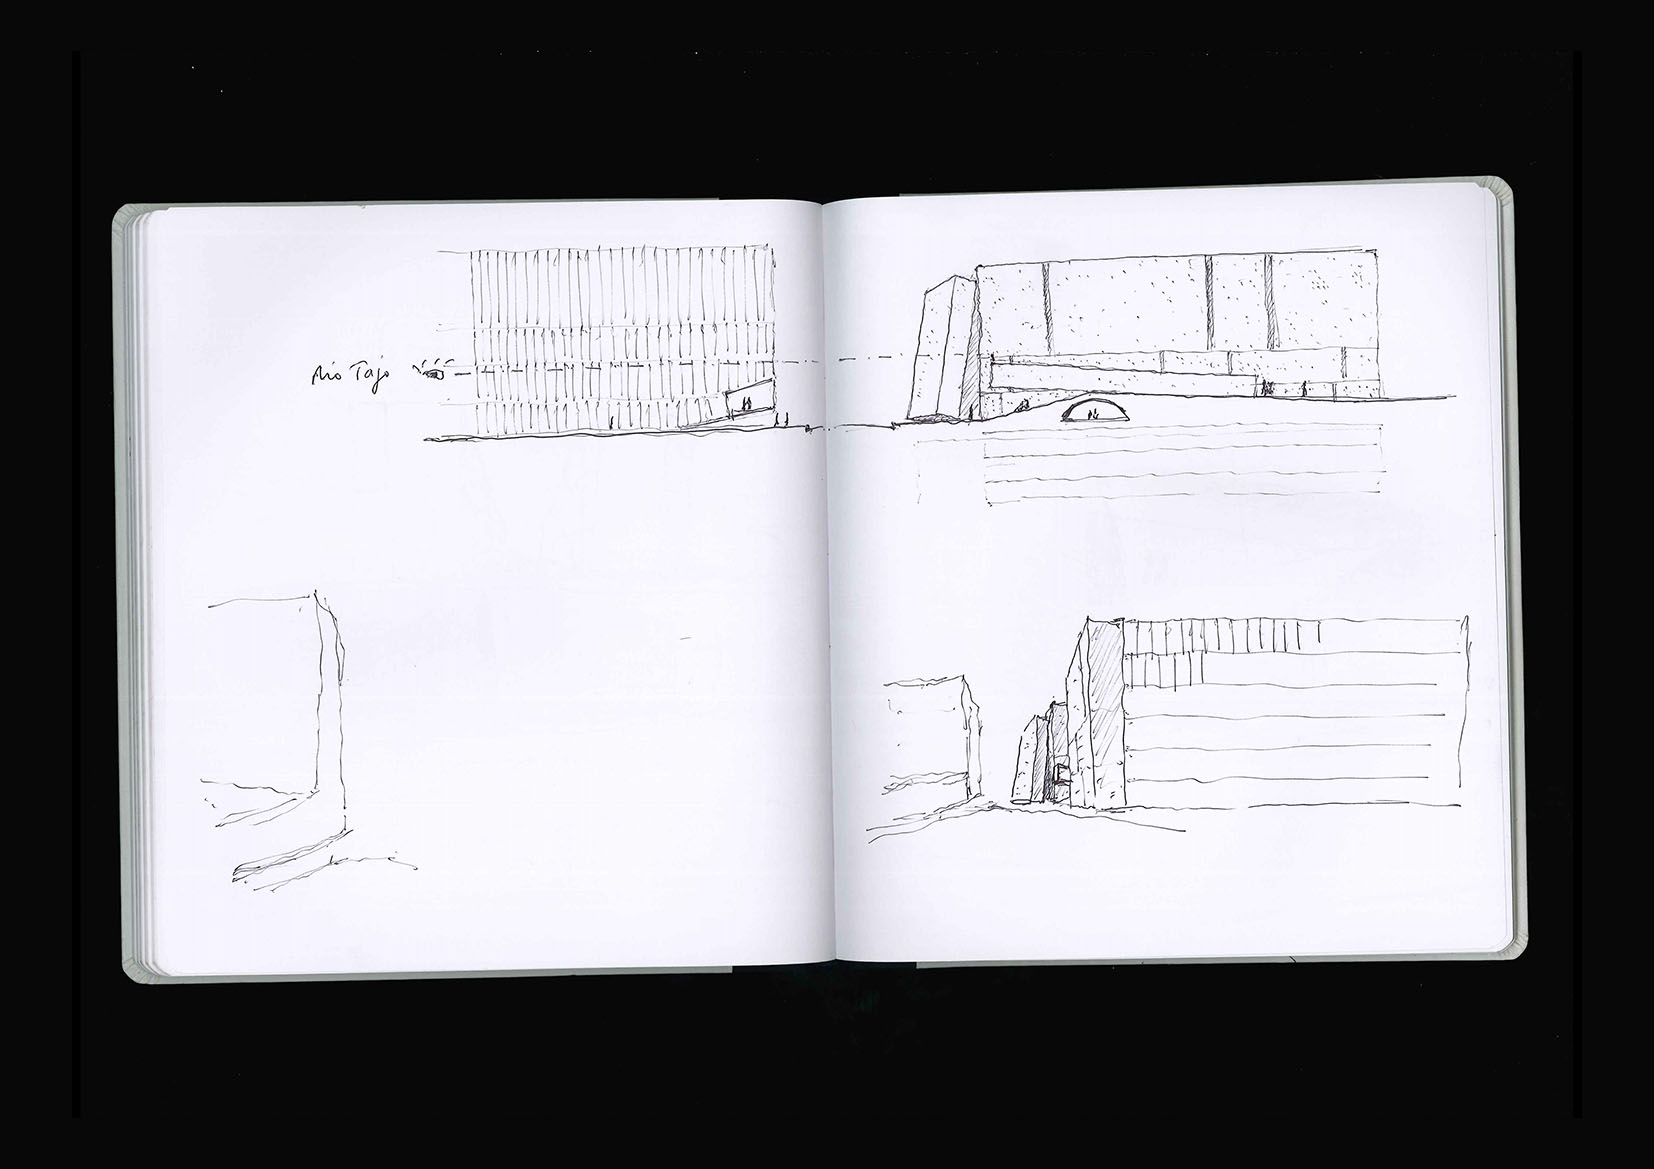 Rio Tajo